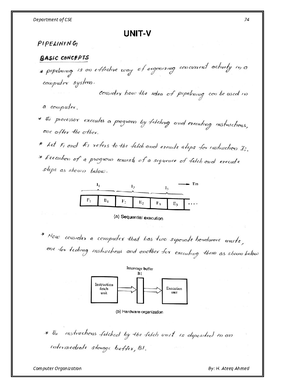 Department of CSE 74
UNIT-V
PIPELINING
BASIC CONCEPTS
* pipelining is an effective way of organizing concurrent activity in a
computer system.
Consider how the idea of pipelining can be used in
a computer.
* The processor executes a program by fetching and executing instructions,
one after the other.
* Let Fi and Ei refer to the fetch and execute steps for instruction Ii.
* Execution of a program consists of a sequence of fetch and execute
steps as shown below:
Time
I1 I2 I3
F1 E1 F2 E2 F3 E3
(a) Sequential execution
* Now consider a computer that has two separate hardware units,
one for fetching instructions and another for executing them as shown below
Interstage buffer
B1
Instruction
fetch
unit
Execution
unit
(b) Hardware organization
* The instruction fetched by the fetch unit is deposited in an
intermediate storage buffer, B1.
Computer Organization By: H. Ateeq Ahmed